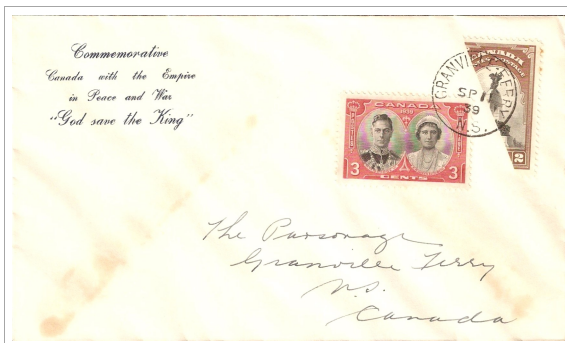 Commemorative
Canada with the Empire
in Peace and War
"God save the King"
GRANVILLE FERRY
SP 11
39
N.S.
CANADA
POSTAGE
2
CANADA
1939
3 3
CENTS
The Parsonage
Granville Ferry
N.S.
Canada